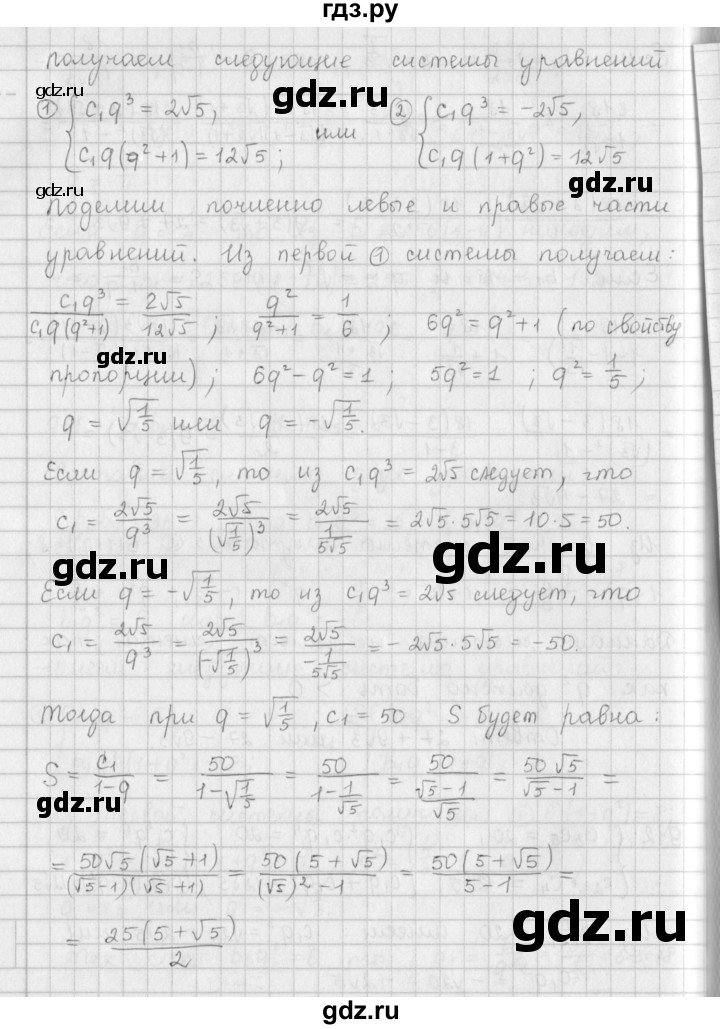 гдз.ру
получаем следующие системы уравнений
gdz.ru gdz.ru
① { c₁q³ = 2√5, или ② { c₁q³ = -2√5,
c₁q(q²+1) = 12√5; c₁q(1+q²) = 12√5
gdz.ru gdz.ru
поделим почленно левые и правые части
уравнений. Из первой ① системы получаем:
c₁q³/c₁q(q²+1) = 2√5/12√5; q²/q²+1 = 1/6; 6q² = q²+1 (по свойству
gdz.ru gdz.ru
пропорции); 6q²-q²=1; 5q²=1; q²=1/5;
q = √1/5 или q = -√1/5.
gdz.ru
Если q = √1/5, то из c₁q³ = 2√5 следует, что
c₁ = 2√5/q³ = 2√5/(√1/5)³ = 2√5/(1/5√5) = 2√5·5√5 = 10·5 = 50.
gdz.ru gdz.ru
Если q = -√1/5, то из c₁q³ = 2√5 следует, что
c₁ = 2√5/q³ = 2√5/(-√1/5)³ = 2√5/(-1/5√5) = -2√5·5√5 = -50.
gdz.ru
Тогда при q = √1/5, c₁ = 50 S будет равна:
gdz.ru
S = c₁/1-q = 50/(1-√1/5) = 50/(1-1/√5) = 50/(√5-1/√5) = 50√5/√5-1 =
gdz.ru
= 50√5(√5+1)/(√5-1)(√5+1) = 50(5+√5)/(√5)²-1 = 50(5+√5)/5-1 =
gdz.ru
= 25(5+√5)/2
gdz.ru
gdz.ru